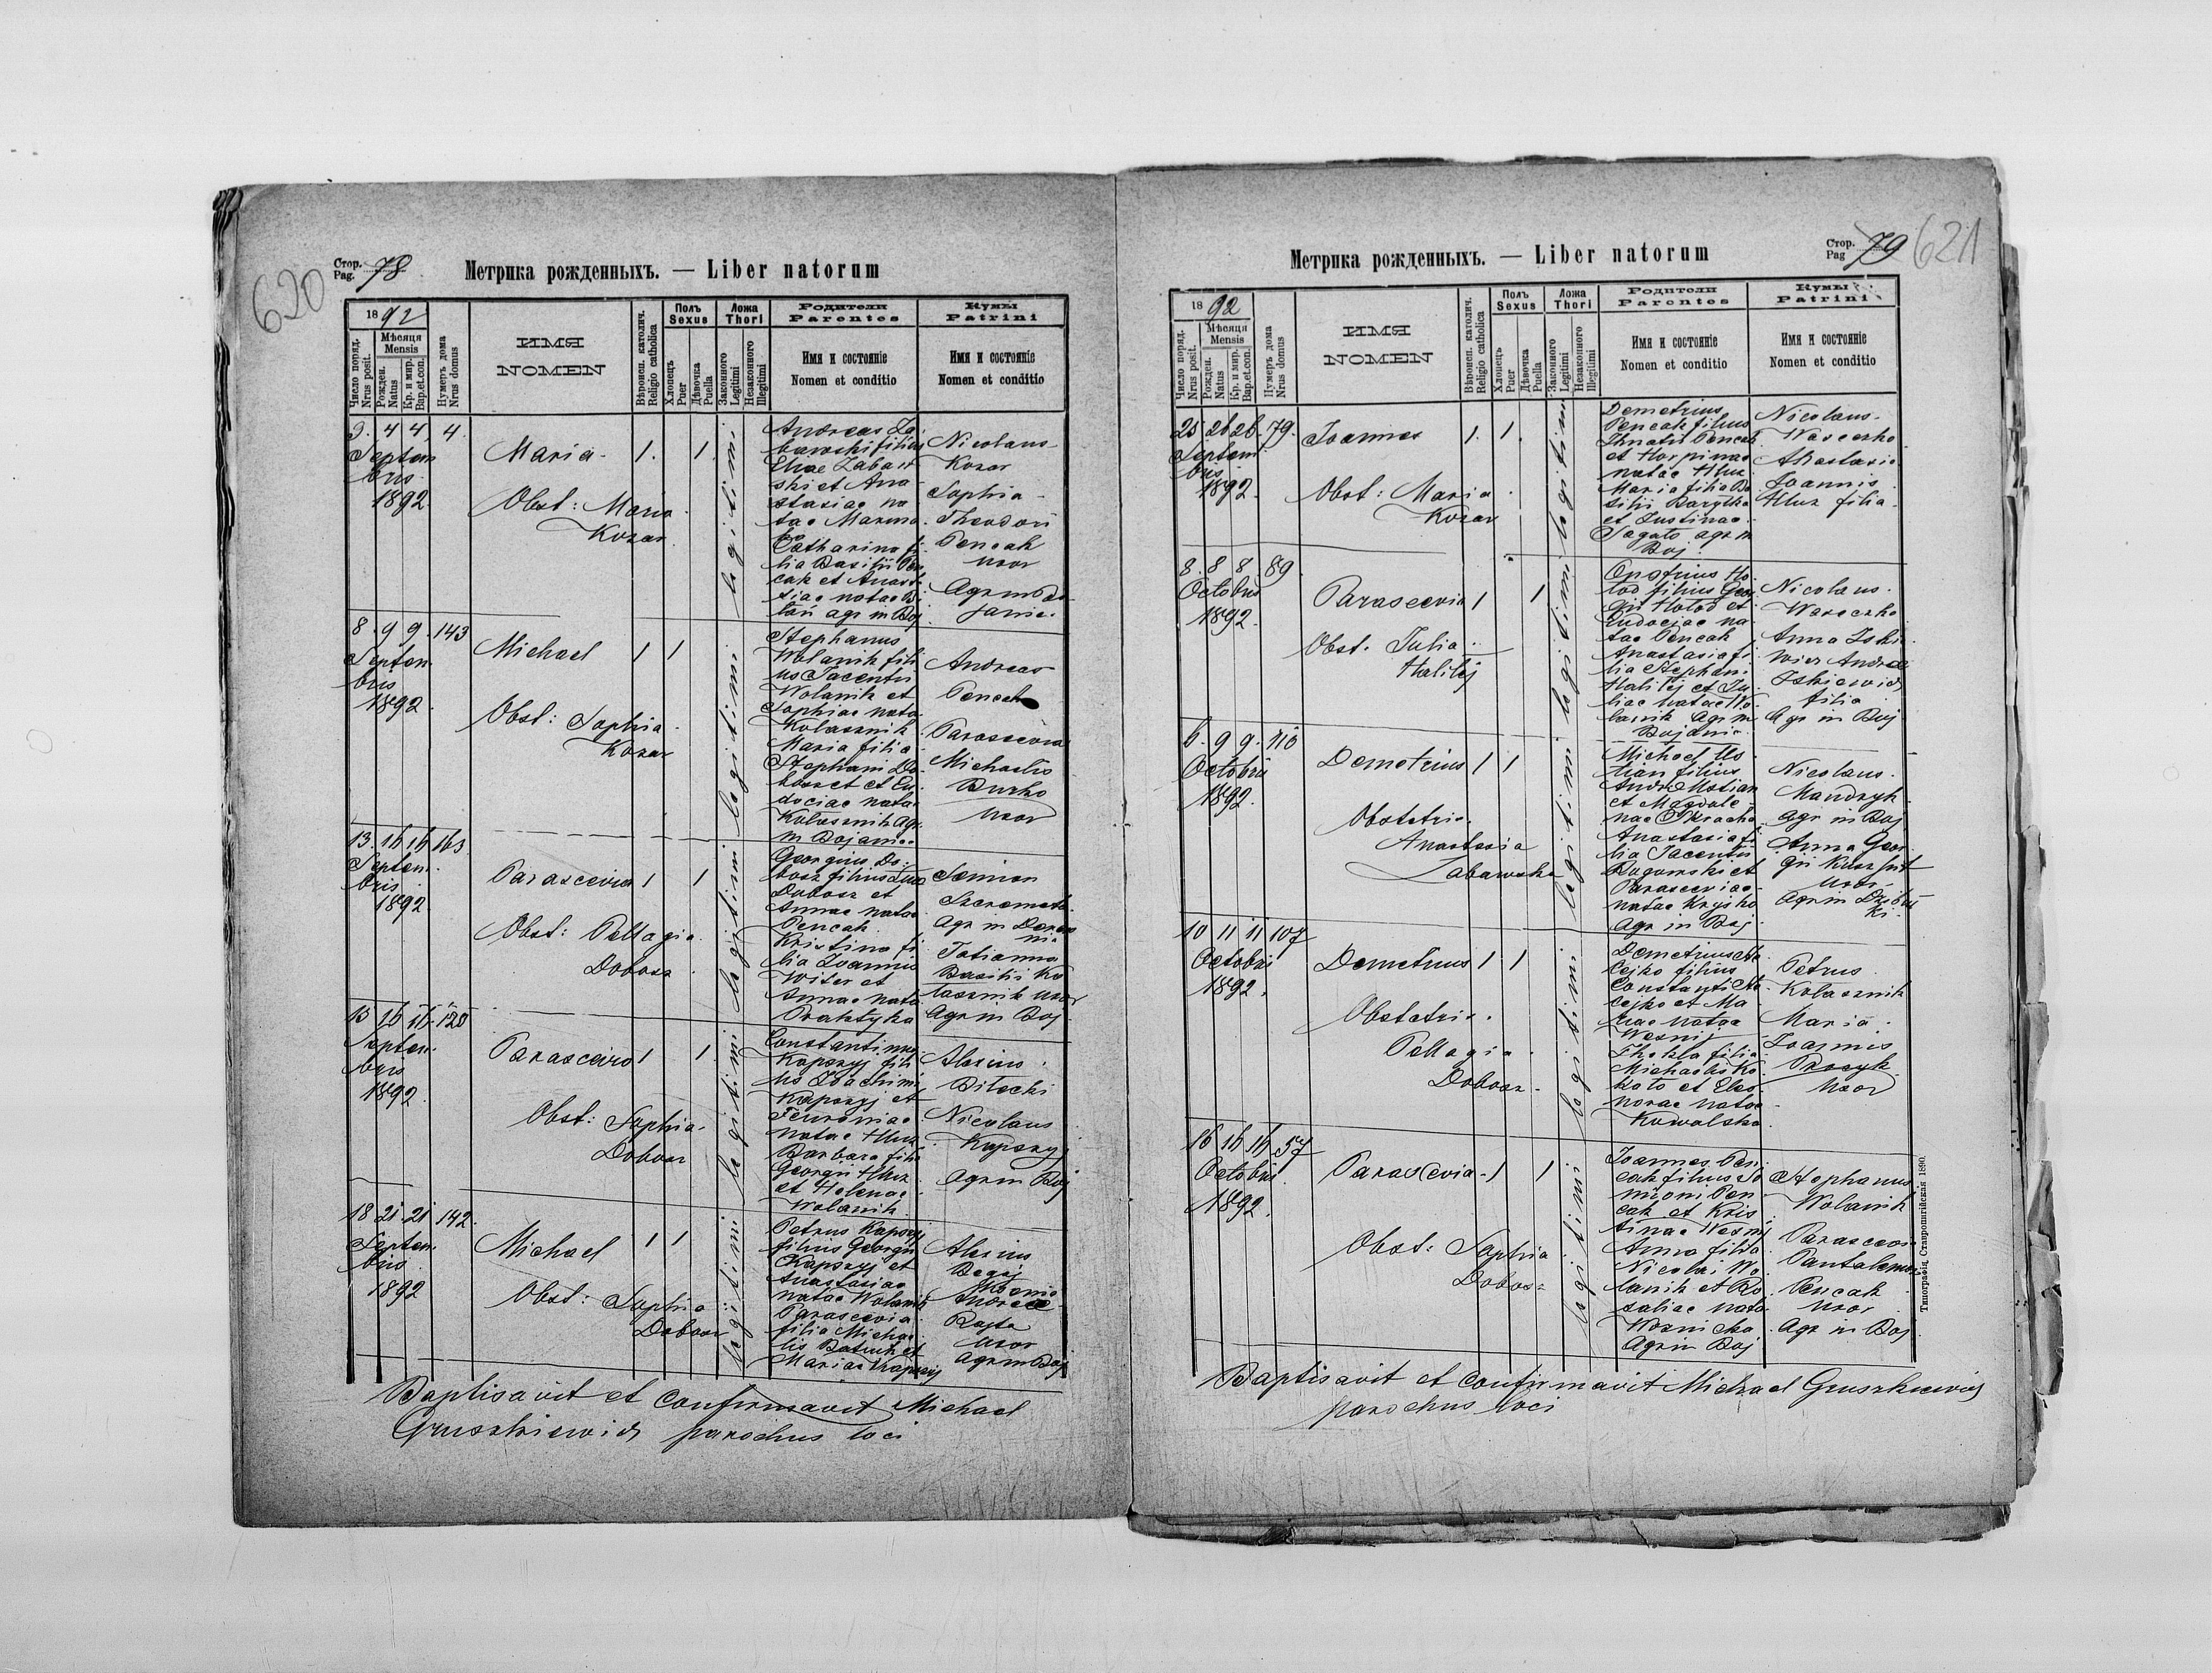 620
Стор. Pag. 78
Метрика рожденныхъ. — Liber natorum
1892
Число поряд. Nrus posit.
Мѣсяця Mensis
Рожден. Natus
Кр. и мир. Bap.et.con.
Нумеръ дома Nrus domus
ИМЯ
NOMEN
Вѣроисп. католич. Religio catholica
Полъ Sexus
Хлопецъ Puer
Дѣвочка Puella
Ложа Thori
Законного Legitimi
Незаконного Illegitimi
Родители
Parentes
Имя и состояніе
Nomen et conditio
Кумы
Patrini
Имя и состояніе
Nomen et conditio
3. 4 4. 4.
Septem
bris
1892
Maria 1. 1
Obst: Maria
Kozar
legitimi
Andreas Za
baroski filius
Eliae Zabaro
ski et Ana
stasiae na
tae
Catharina fi
lia Basilii Pen
cak et Anasta
siae natae
agr in Boj
Nicolaus
Kozar
Sophia
Theodori
Pencak
uxor
Agr in Bo
janic.
8. 9 9. 143
Septem
bris
1892
Michael 1 1
Obst: Sophia
Kozar
legitimi
Stephanus
Wolanik fili
us Jacentii
Wolanik et
Sophiae nata
Kolasznik
Maria filia
Stephani Do
et Eu
dociae natae
Kolasznik Agr.
in Bojanic
Andreas
Pencak
Parascevia
Michaelis
Burko
uxor
13. 16 16 163
Septem
bris
1892
Parascevia 1 1
Obst: Pellagia
Dobosz
legitimi
Georgius Do
bosz filius
Dobosz et
Annae natae
Pencak
Kristina fi
lia Joannis
Witer et
Annae nata
Praktyka
Simion
Szeremeta
Agr in
Tatianna
Basilii Ko
lasznik uxor
Agr in Boj
15 16 16. 120
Septem
bris
1892
Parascevia 1 1
Obst: Sophia
Dobosz
legitimi
Constantinus
Kapszyj fili
us Joachimi
Kapszyj et
natae Hluz
Barbara filia
Georgii Hluz
et Helenae
Wolanik
Alexius
Bilecki
Nicolaus
Kapszyj
Agr in Boj
18 21. 21 142.
Septem
bris
1892
Michael 1 1
Obst: Sophia
Dobosz
legitimi
Petrus Kapszyj
filius Georgii
Kapszyj et
Anastasiae
natae Wolanik
Parascevia
filia Michae
lis Batiuk et
Mariae Kapszyj
Alexius
Andreae
Rajta
uxor
Agr in Boj
Baptisavit et Confirmavit Michael
Gruszkiewicz parochus loci
621
Стор. Pag 79
Метрика рожденныхъ. — Liber natorum
1892
Число поряд. Nrus posit.
Мѣсяця Mensis
Рожден. Natus
Кр. и мир. Bap.et.con.
Нумеръ дома Nrus domus
ИМЯ
NOMEN
Вѣроисп. католич. Religio catholica
Полъ Sexus
Хлопецъ Puer
Дѣвочка Puella
Ложа Thori
Законного Legitimi
Незаконного Illegitimi
Родители
Parentes
Имя и состояніе
Nomen et conditio
Кумы
Patrini
Имя и состояніе
Nomen et conditio
25. 26 26. 79.
Septem
bris
1892.
Joannes 1. 1.
Obst: Maria
Kozar
legitimi
Demetrius
Pencak filius
Ihnatii Pencak
et Horpinae
natae Hluz
Maria filia Ba
silii
et Justinae
agr in
Boj
Nicolaus
Waseczko
Anastasia
Joannis
Hluz filia
8. 8 8 89
Octobris
1892.
Parascevia 1 1
Obst. Julia
Halilej
legitimi
Onofrius Ho
lod filius Geor
gii Holod et
Eudociae na
tae Pencak
Anastasia fi
lia Stephani
Halilej et Ju
liae natae Wo
lanik Agr in
Bojanic
Nicolaus
Waseczko
Anna Iski
wicz Andreae
Iskiewicz
filia
Agr in Boj
6. 9 9. 110
Octobris
1892.
Demetrius 1 1
Obstetrix
Anastasia
Zabawska
legitimi
Michael
filius
et Magdale
nae
Anastasia fi
lia Jacentii
et
Parasceviae
natae Krysko
Agr in Boj
Nicolaus
Mandzyk
agr in Boj
Anna Geor
gii
uxor
Agr in
10 11 11 107
Octobris
1892.
Demetrius 1 1
Obstetrix
Pellagia
Dobosz
legitimi
Demetrius Ma
cejko filius
Constanti Ma
cejko et Ma
riae natae
Wesnij
Thekla filia
Michaelis Ko
koto et Eleo
norae natae
Kowalska
Petrus
Kolasznik
Maria
Joannis
Procyk
uxor
16 16 16 57
Octobris
1892.
Parascevia 1 1
Obst: Sophia
Dobosz
legitimi
Joannes Pen
cak filius Si
mioni Pen
cak et Kris
tinae Wesnij
Anna filia
Nicolai Wo
lanik et Ro
saliae nata
Agr in Boj
Stephanus
Wolanik
Parascevia
Pantalemon
Pencak
uxor
Agr in Boj
Baptisavit et Confirmavit Michael Gruszkiewicz
parochus loci
Типографія Ставропигійская 1890.